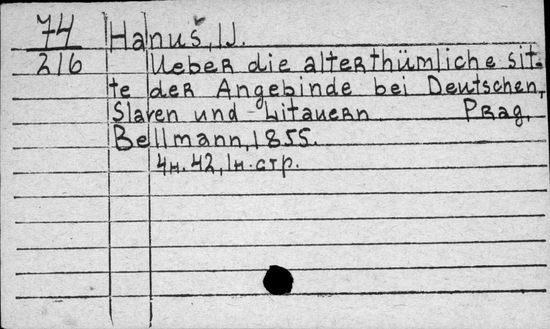 74 Hanuš, IJ.
216 Ueber die alterthümliche sit-
te der Angebinde bei Deutschen,
Slaven und Litauern Prag,
Bellmann, 1855.
4н. 42, 1н. стр.